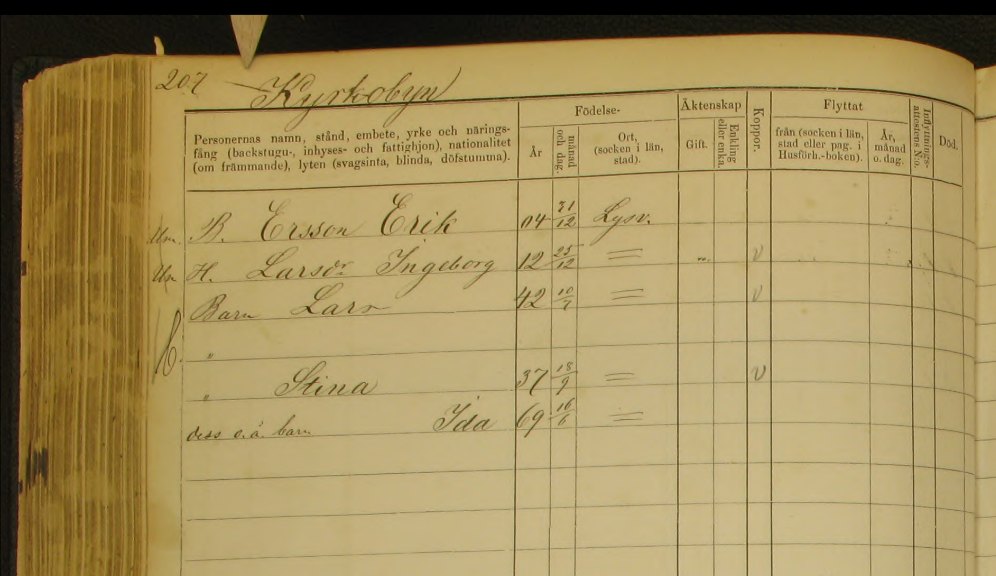 207 Kyrkobyn
Personernas namn, stånd, embete, yrke och närings-
fång (backstugu-, inhyses- och fattighjon), nationalitet
(om främmande), lyten (svagsinta, blinda, döfstumma).
Födelse-
År
månad
och dag.
Ort,
(socken i län,
stad).
Äktenskap
Gift.
Enkling
eller enka.
Koppor.
Flyttat
från (socken i län,
stad eller pag. i
Husförh.-boken).
År,
månad
o. dag.
Inflyttnings-
attestens N:o.
Död.
B. Ersson Erik 04 31/12 Lysv.
H. Larsdr Ingeborg 12 25/12 = „ v
Barn Lars 42 10/7 = v
„
„ Stina 37 18/9 = v
dess o.ä. barn Ida 69 16/6 =